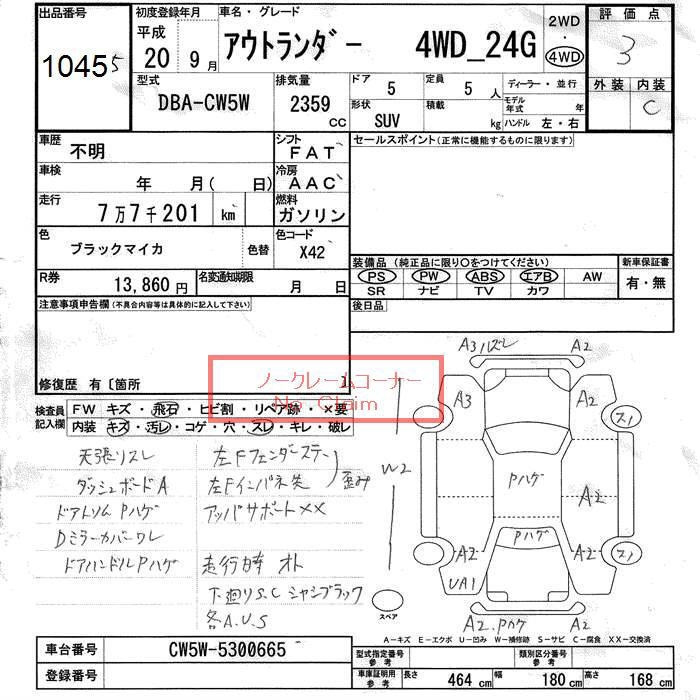 出品番号
1045 5
初度登録年月
平成
20 9月
車名・グレード
アウトランダー 4WD_24G
2WD
・
4WD
評価点
3
型式
DBA-CW5W
排気量
2359
CC
ドア
5
定員
5 人
ディーラー・並行
形状
SUV
積載
kg
モデル年式 年
ハンドル 左・右
外装 内装
C
車歴
不明
シフト
FAT
車検
年 月( 日)
冷房
AAC
走行
7万7千201 km
燃料
ガソリン
色
ブラックマイカ
色替
色コード
X42
R券
13,860円
名変通知期限
月 日
セールスポイント(正常に機能するものに限ります)
装備品(純正品に限り○をつけてください)
新車保証書
PS PW ABS エアB AW
SR ナビ TV カワ
有・無
後日品
注意事項申告欄(不具合内容等は具体的に記入して下さい)
修復歴 有〔箇所
ノークレームコーナー
No Claim
検査員記入欄
FW キズ・飛石・ヒビ割・リペア跡・×要
内装 キズ・汚レ・コゲ・穴・スレ・キレ・破レ
天張リスレ
ダッシュボードA
ドアトリム Pハゲ
Dミラーカバーワレ
ドアハンドルPハゲ
左Fフェンダーステー
左Fインパネ先
歪み
アッパサポート××
走行時 オト
下廻りS.C シャシブラック
各A.U.S
A3ハズレ A2
A3 A2
スノ
W2
Pハゲ
A2
Pハゲ
A2 A2
スノ
UA1
スペア
A2.Pハゲ A2
A-キズ E-エクボ U-凹み W-補修跡 S-サビ C-腐食 XX-交換済
車台番号
CW5W-5300665
登録番号
型式指定番号
参考
類別区分番号
参考
車庫証明用
参考
長さ 464 cm
幅 180 cm
高さ 168 cm